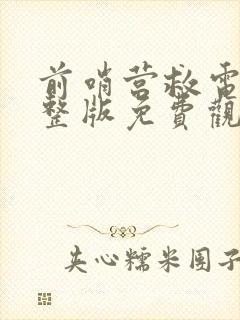 前哨营救電
整版免費觀
夹心糯米团子